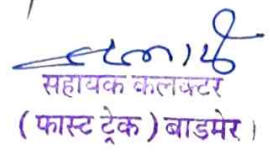 सहायक कलक्टर
( फास्ट ट्रेक ) बाडमेर।